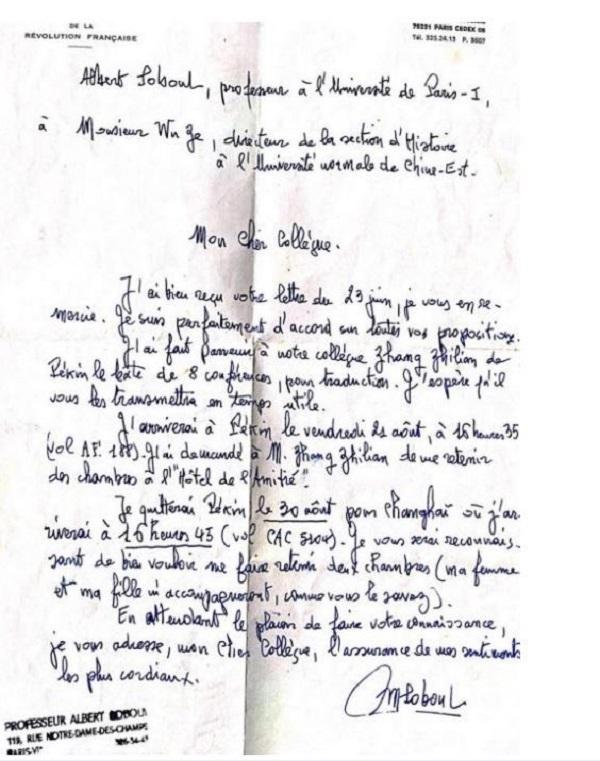 DE LA
RÉVOLUTION FRANÇAISE
75231 PARIS CEDEX 05
Tél. 325.24.13 P. 3607
Albert Soboul, professeur à l'Université de Paris-I,
à Monsieur Wu Ze, directeur de la section d'Histoire
à l'Université normale de Chine-Est.
Mon cher Collègue.
J'ai bien reçu votre lettre du 23 juin, je vous en re-
mercie. Je suis parfaitement d'accord sur toutes vos propositions.
J'ai fait parvenir à notre collègue Zhang Zhilian de
Pékin le texte de 8 conférences, pour traduction. J'espère qu'il
vous les transmettra en temps utile.
J'arriverai à Pékin le vendredi 21 août, à 15 heures 35
(vol AF. 188). J'ai demandé à M. Zhang Zhilian de me retenir
des chambres à l'"Hôtel de l'Amitié".
Je quitterai Pékin le 30 août pour Changhaï où j'ar-
riverai à 16 heures 45 (vol CAC). Je vous serai reconnais-
sant de bien vouloir me faire retenir deux chambres (ma femme
et ma fille m'accompagneront, comme vous le savez).
En attendant le plaisir de faire votre connaissance,
je vous adresse, mon cher Collègue, l'assurance de mes sentiments
les plus cordiaux.
Soboul
PROFESSEUR ALBERT SOBOUL
118, RUE NOTRE-DAME-DES-CHAMPS
PARIS-VIe